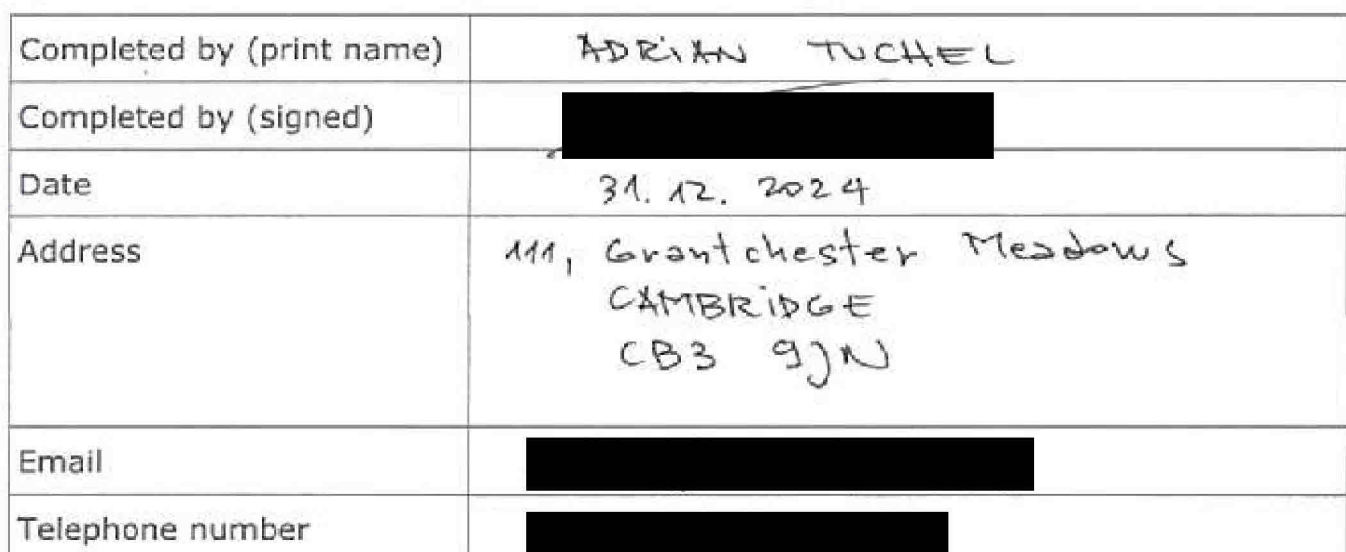 Completed by (print name) ADRiAN TUCHEL
Completed by (signed)
Date 31.12.2024
Address 111, Grantchester Meadows
CAMBRiDGE
CB3 9JN
Email
Telephone number